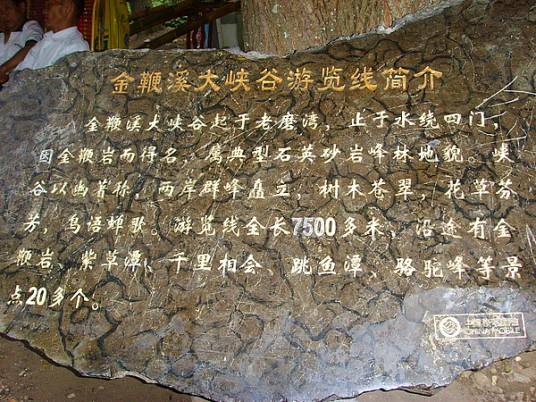 金鞭溪大峡谷游览线简介
金鞭溪大峡谷起于老磨湾，止于水绕四门，
因金鞭岩而得名，属典型石英砂岩峰林地貌。峡
谷以幽著称，两岸群峰矗立，树木苍翠，花草芬
芳，鸟语蝉歌。游览线全长7500多米，沿途有金
鞭岩、紫草潭、千里相会、跳鱼潭、骆驼峰等景
点20多个。
中国移动通信
CHINA MOBILE